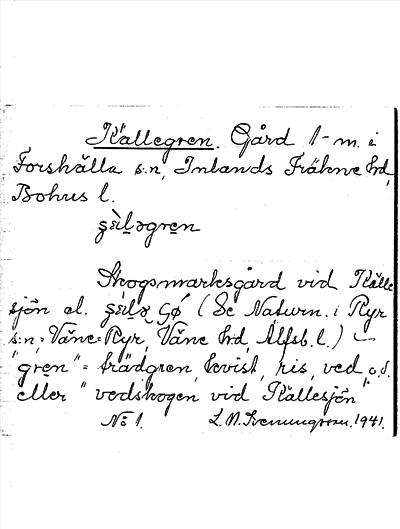 Källegren. Gård 1-m. i
Forshälla s:n, Inlands Fräkne hd,
Bohus l.
Skogsmarksgård vid Källe
sjön el. (Se Naturn. i Ryr
s:n = Väne-Ryr, Väne hd, Älfsb. l.) —
"gren" = trädgren, kvist, ris, ved o.d.
eller "vedskogen vid Källesjön"
No 1. L. N. Svenungsson. 1941.